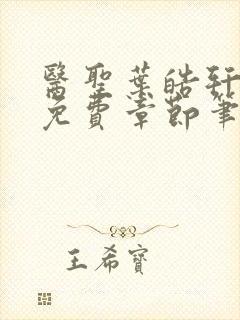 醫聖葉皓軒
免費章節筆
王希寶